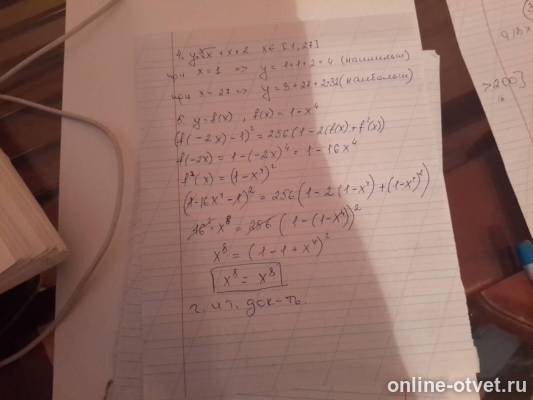 4. y=∛x + x + 2 x ∈ [1, 27]
при x = 1 => y = 1+1+2 = 4 (наименьш)
при x = 27 => y = 3+27+2=32 (наибольш)
5. y = f(x), f(x) = 1-x⁴
(f(-2x)-1)² = 256(1-2f(x)+f²(x))
f(-2x) = 1-(-2x)⁴ = 1-16x⁴
f²(x) = (1-x⁴)²
(1-16x⁴-1)² = 256(1-2(1-x⁴)+(1-x⁴)²)
16² · x⁸ = 256 (1-(1-x⁴))²
x⁸ = (1-1+x⁴)²
x⁸ = x⁸
ч. и т. док-ть.
>200]
online-otvet.ru